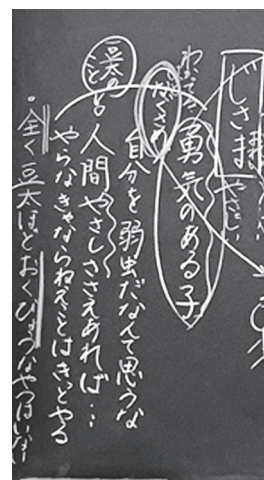 じさま
やさしい
勇気のある子
自分を弱虫だなんて思うな
人間やさしささえあれば…
やらなきゃならねえことはきっとやる
・全く豆太ほどおくびょうなやつはいない